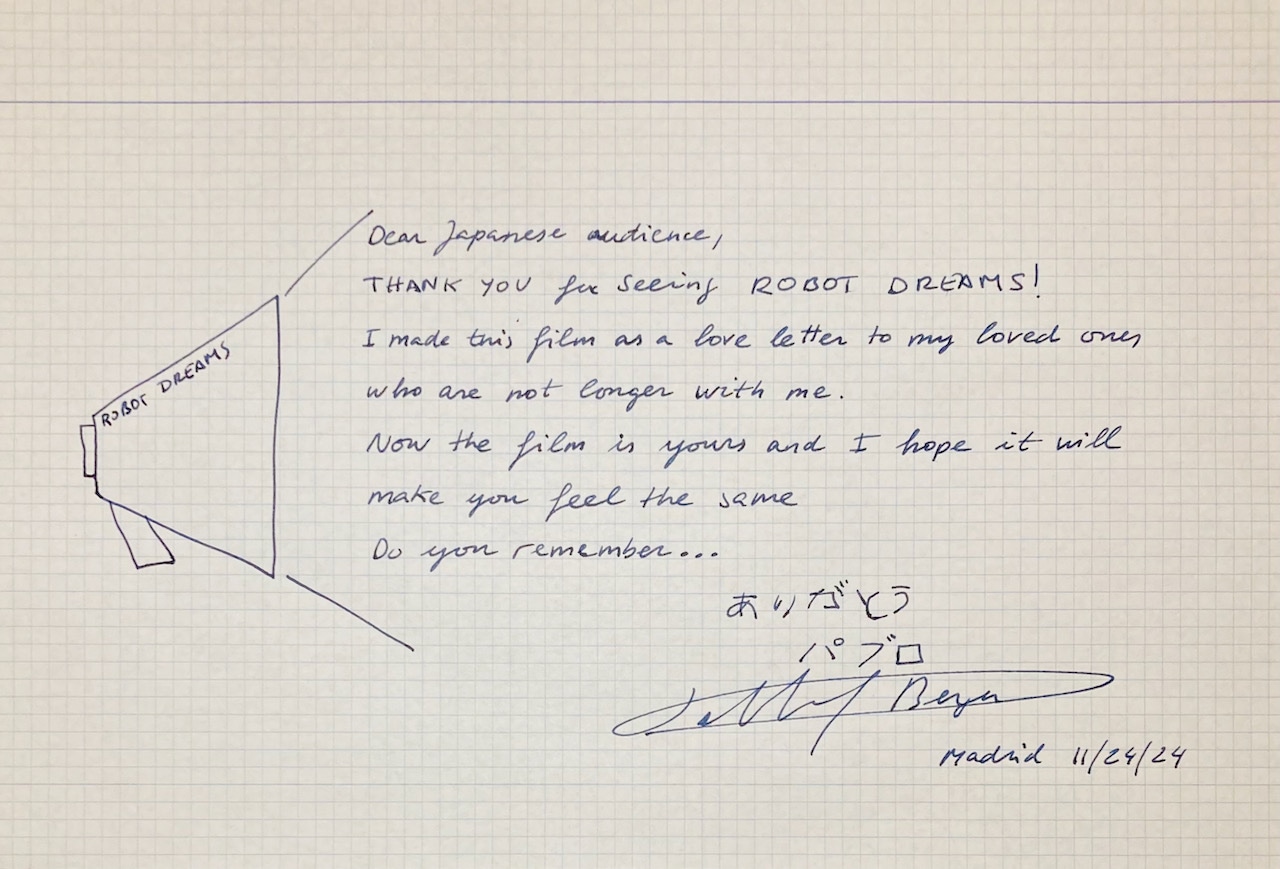 Dear Japanese audience,
THANK YOU for seeing ROBOT DREAMS!
I made this film as a love letter to my loved ones
who are not longer with me.
ROBOT DREAMS
Now the film is yours and I hope it will
make you feel the same
Do you remember...
ありがとう
パブロ
Pablo Berger
Madrid 11/24/24